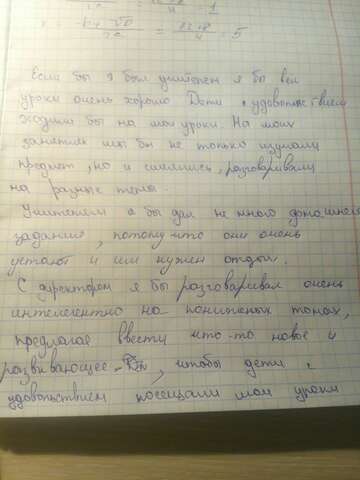 2a 4 1
b+√D = 12+8 = 5
2a 4
Если бы я был учителем я бы вел
уроки очень хорошо. Дети с удовольствием
ходили бы на мои уроки. На моих
занятиях мы бы не только изучали
предмет, но и смеялись, разговаривали
на разные темы.
Учителем я бы дал не много домашнего
задания, потому что они очень
устают и им нужен отдых.
С директором я бы разговаривал очень
интелегентно на пониженых тонах,
предлагае ввести что-то новое и
развивающее, чтобы дети с
удовольствием посещали мои уроки